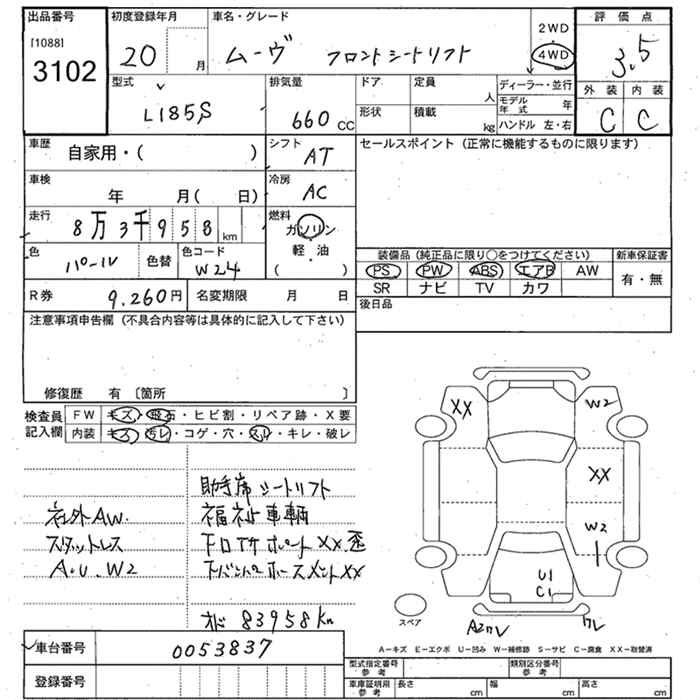 出品番号 初度登録年月 車名・グレード 評価点
[1088] 2WD
3102 20 月 ムーヴ フロントシートリフト 4WD 3.5
型式 排気量 ドア 定員 ディーラー・並行 外装 内装
人 モデル年式 年
L185S 660 CC 形状 積載 kg ハンドル 左・右 C C
車歴 自家用・( ) シフト AT セールスポイント(正常に機能するものに限ります)
車検 年 月( 日) 冷房 AC
走行 8万3千958 km 燃料 ガソリン
軽・油
( )
色 パール 色替 色コード W24 装備品(純正品に限り○をつけてください) 新車保証書
PS PW ABS エアB AW 有・無
SR ナビ TV カワ
R券 9,260円 名変期限 月 日 後日品
注意事項申告欄(不具合内容等は具体的に記入して下さい)
修復歴 有 [箇所 ]
検査員記入欄 FW キズ・飛石・ヒビ割・リペア跡・X要
内装 キズ・汚レ・コゲ・穴・スレ・キレ・破レ
XX W2
XX
W2
U1
C1
助手席シートリフト
社外AW. 福祉車輌
スタットレス
A.U.W2
オド 83958km
スペア
A2ワレ ワレ
A-キズ E-エクボ U-凹み W-補修跡 S-サビ C-腐食 XX-取替済
車台番号 0053837
登録番号
型式指定番号 参考 類別区分番号 参考
車庫証明用 参考 長さ cm 幅 cm 高さ cm